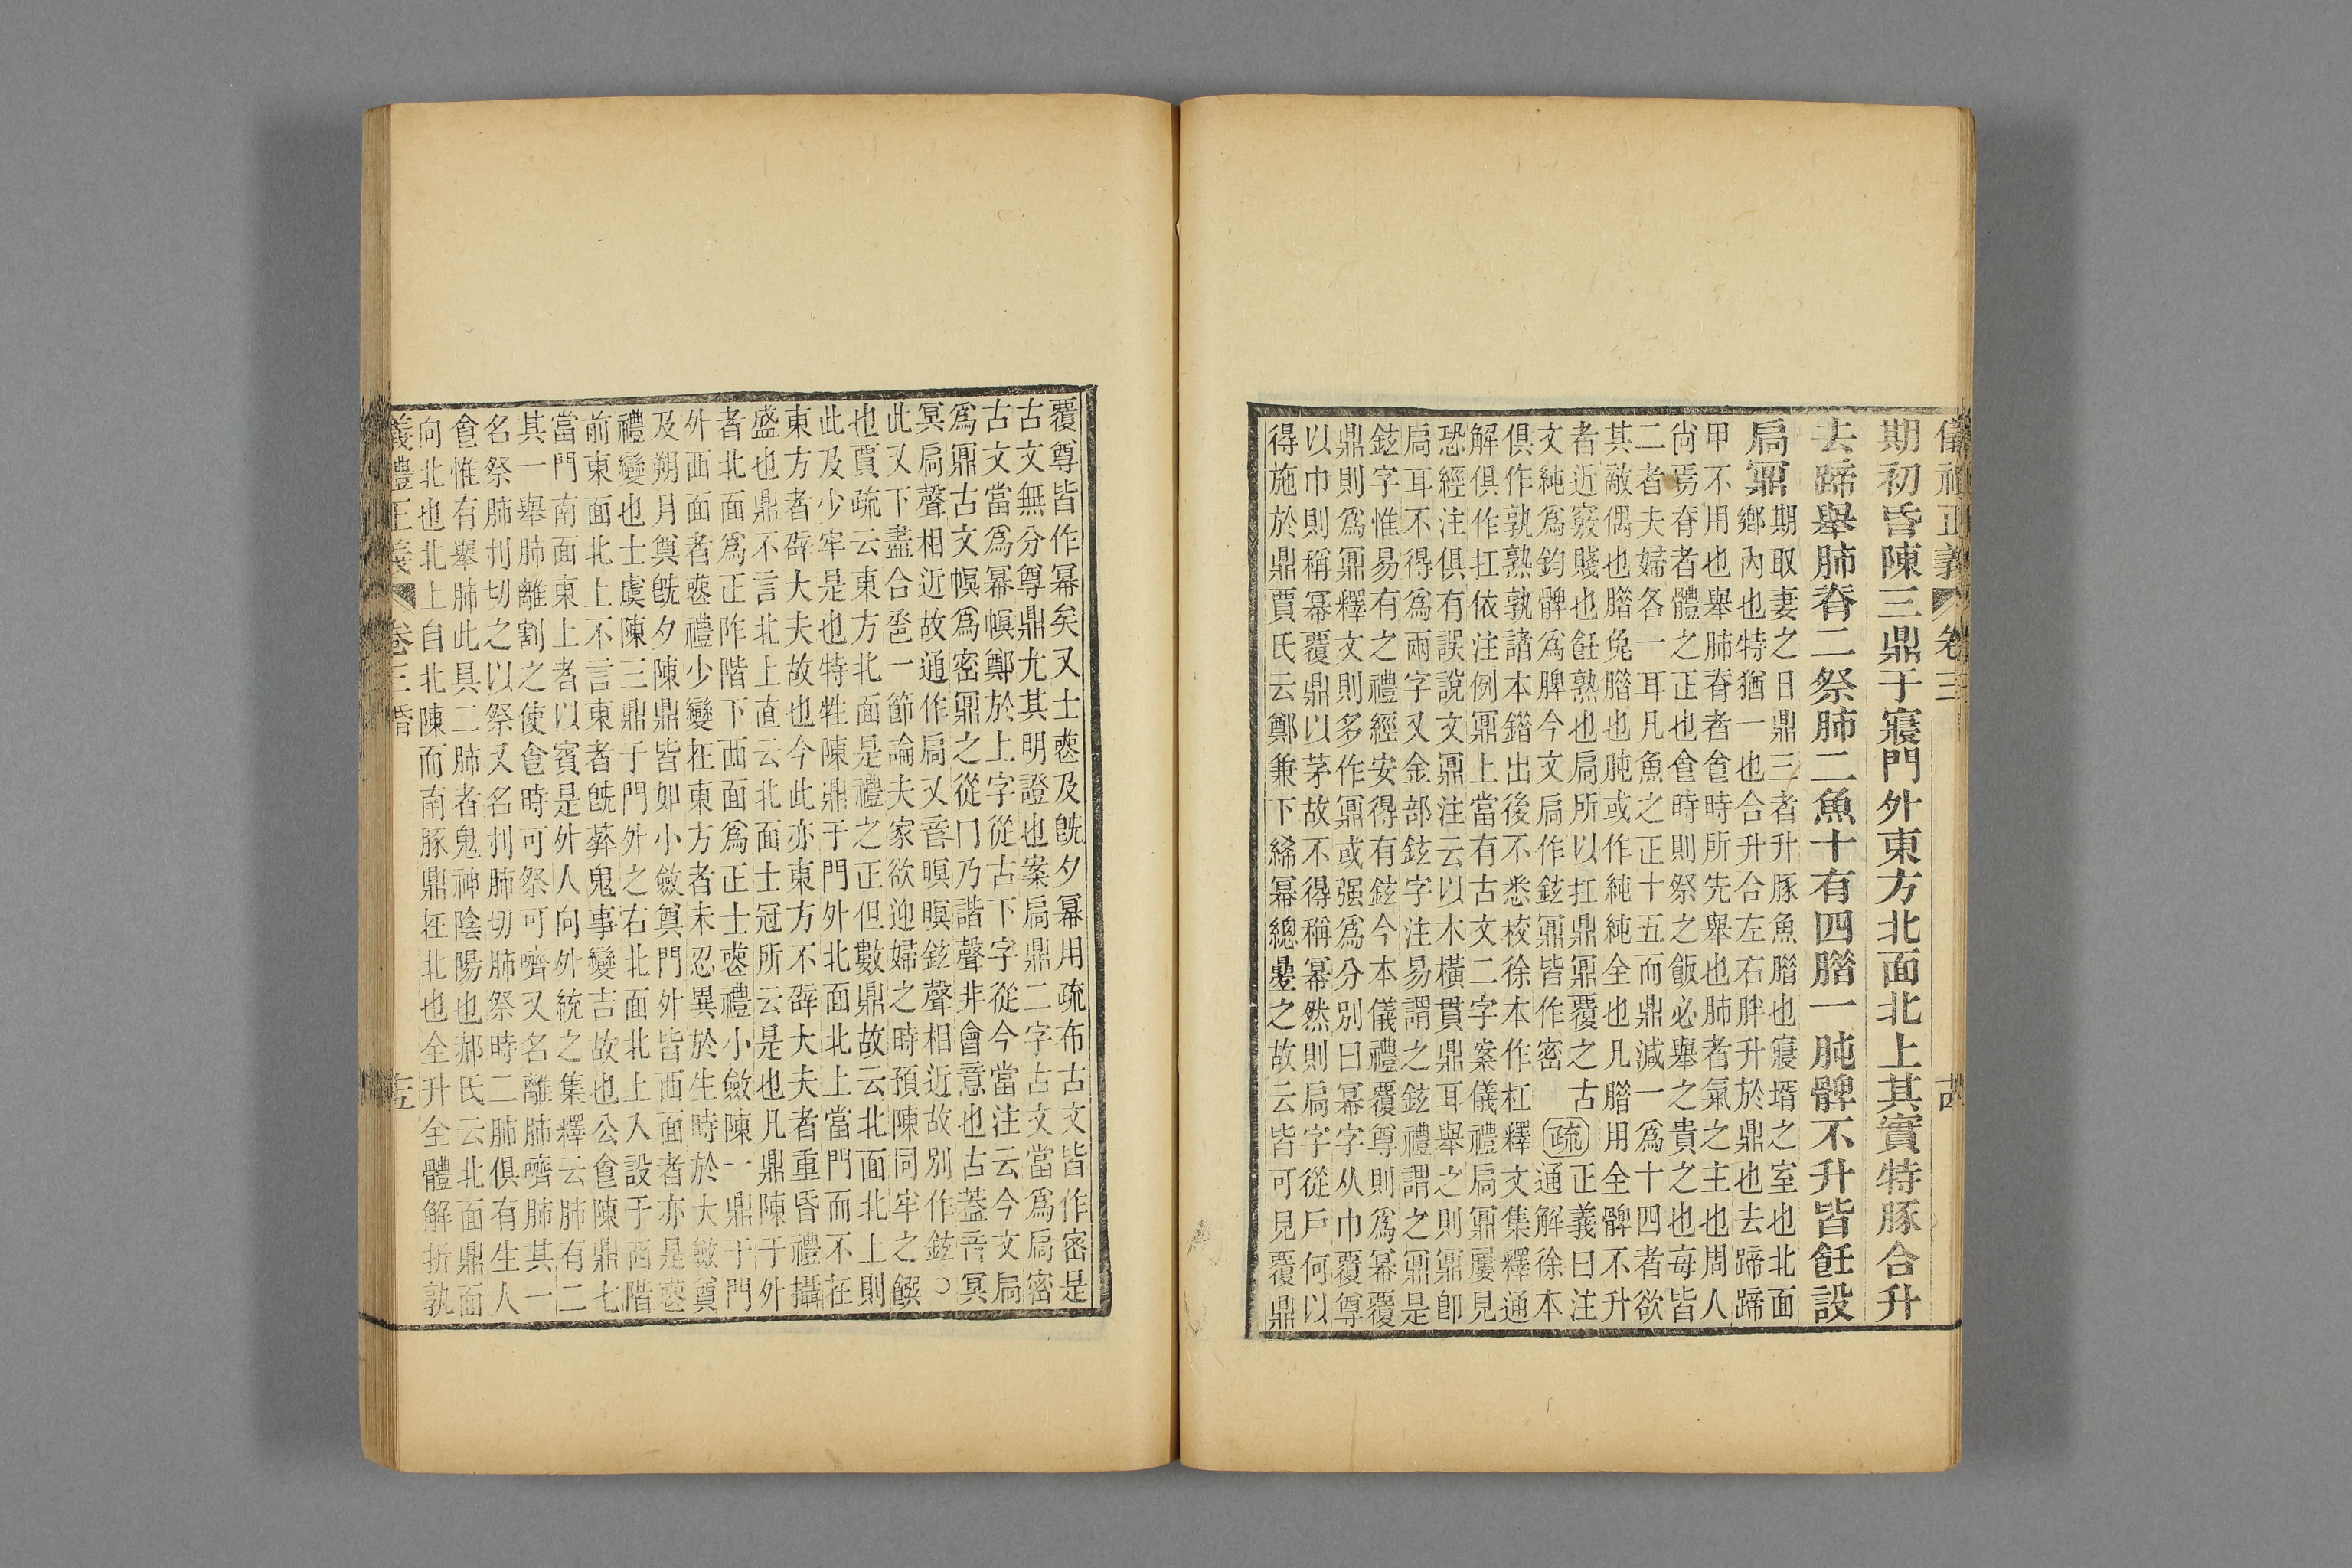 儀禮正義 卷三 十四
期初昏陳三鼎于寢門外東方北面北上其實特豚合升
去蹄舉肺脊二祭肺二魚十有四腊一肫髀不升皆飪設
扃鼏
期取妻之日鼎三者升豚魚腊也寢壻之室也北面
鄉內也特猶一也合升合左右胖升於鼎也去蹄蹄
甲不用也舉肺脊者食時所先舉也肺者氣之主也周人
尙焉脊者體之正也食時則祭之飯必舉之貴之也每皆
二者夫婦各一耳凡魚之正十五而鼎減一爲十四者欲
其敵偶也腊兔腊也肫或作純純全也凡腊用全髀不升
者近竅賤也飪熟也扃所以扛鼎鼏覆之古
文純爲鈞髀爲脾今文扃作鉉鼏皆作密
疏正義曰注
通解徐本
俱作孰熟孰諸本錯出後不悉校徐本作杠釋文集釋通
解俱作扛依注例鼏上當有古文二字案儀禮扃鼏屢見
恐經注俱有誤說文鼏注云以木橫貫鼎耳舉之則鼏卽
扃耳不得爲兩字又金部鉉字注易謂之鉉禮謂之鼏是
鉉字惟易有之禮經安得有鉉今本儀禮覆尊則爲冪覆
鼎則爲鼏釋文則多作鼏或强爲分別曰冪字从巾覆尊
以巾則稱冪覆鼎以茅故不得稱冪然則扃字從戶何以
得施於鼎賈氏云鄭兼下綌冪總疊之故云皆可見覆鼎
覆尊皆作冪矣又士喪及旣夕冪用疏布古文皆作密是
古文無分尊鼎尤其明證也案扃鼎二字古文當爲扃密
古文當爲冪幎鄭於上字從古下字從今當注云今文扃
爲鼎古文幎爲密鼎之從冂乃諧聲非會意也古葢音冥
冥扃聲相近故通作扃又音暝暝鉉聲相近故別作鉉○
此又下盡合巹一節論夫家欲迎婦之時預陳同牢之饌
也賈疏云東方北面是禮之正但數鼎故云北面北上則
此及少牢是也特牲陳鼎于門外北面北上當門而不在
東方者辟大夫故也今此亦東方不辟大夫者重昏禮攝
盛也鼎不言北上直云北面士冠所云是也凡鼎陳于外
者北面爲正阼階下西面爲正士喪禮小斂陳一鼎于門
外西面者喪禮少變在東方者未忍異於生時於大斂奠
及朔月奠旣夕陳鼎皆如小斂奠門外皆西面者亦是喪
禮變也士虞陳三鼎于門外之右北面北上入設于西階
前東面北上不言東者旣葬鬼事變吉故也公食陳鼎七
當門南面東上者以賓是外人向外統之集釋云肺有二
其一舉肺離割之使食時可祭可嚌又名離肺嚌肺其一
名祭肺刌切之以祭又名刌肺切肺祭時二肺俱有生人
食惟有舉肺此具二肺者鬼神陰陽也郝氏云北面鼎面
向北也北上自北陳而南豚鼎在北也全升全體解折孰
儀禮正義 卷三 昏 十五